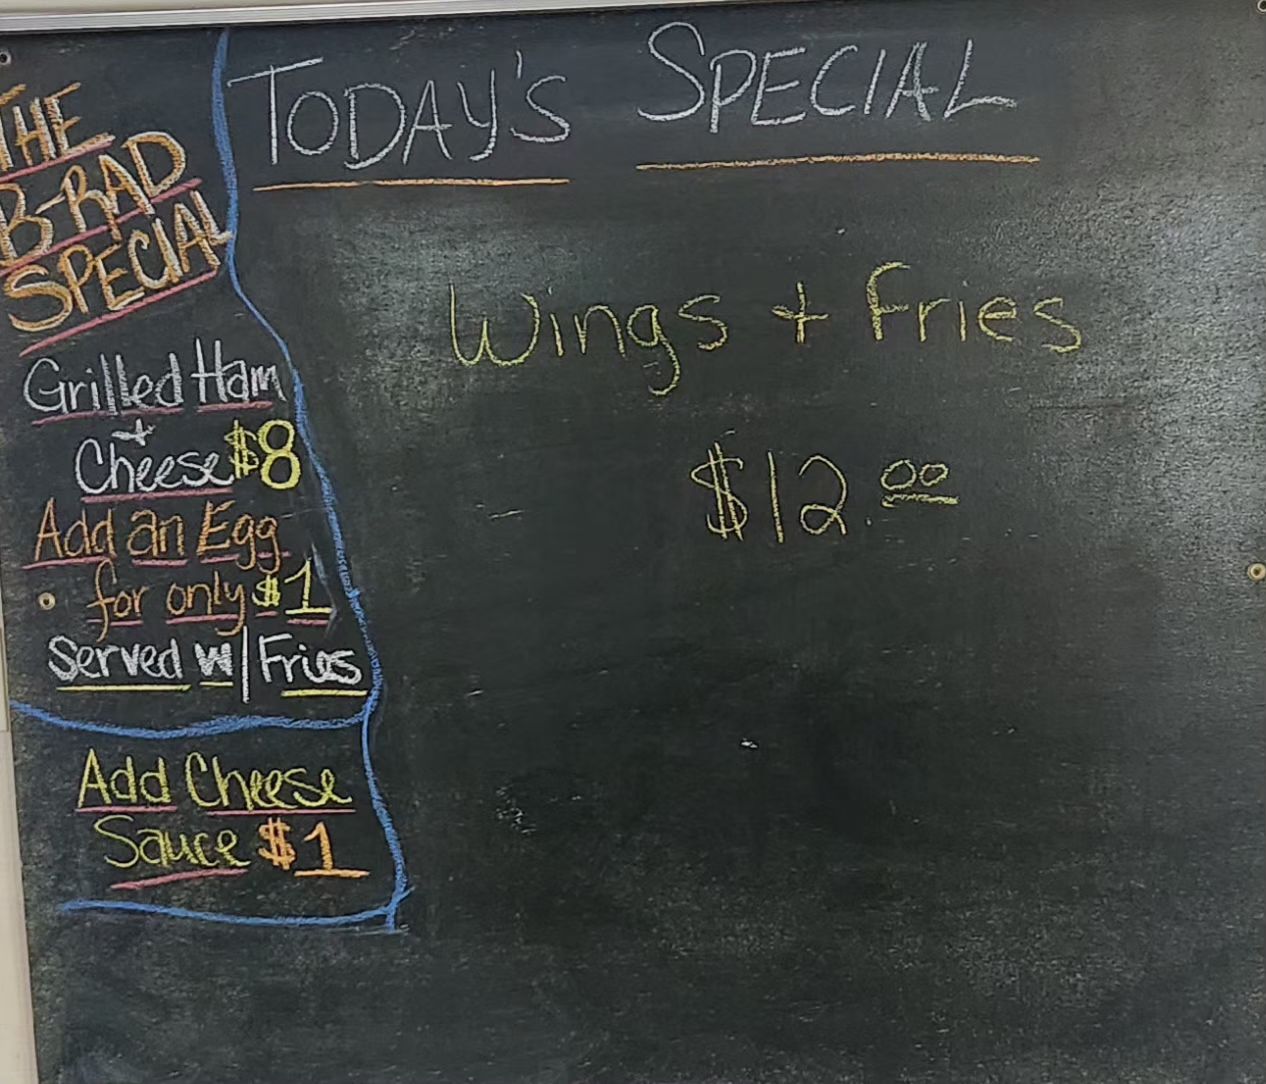 THE
B-RAD
SPECIAL
Grilled Ham
+
Cheese $8
Add an Egg
for only $1
Served w/ Fries
Add Cheese
Sauce $1
TODAY'S SPECIAL
Wings + Fries
$12.00